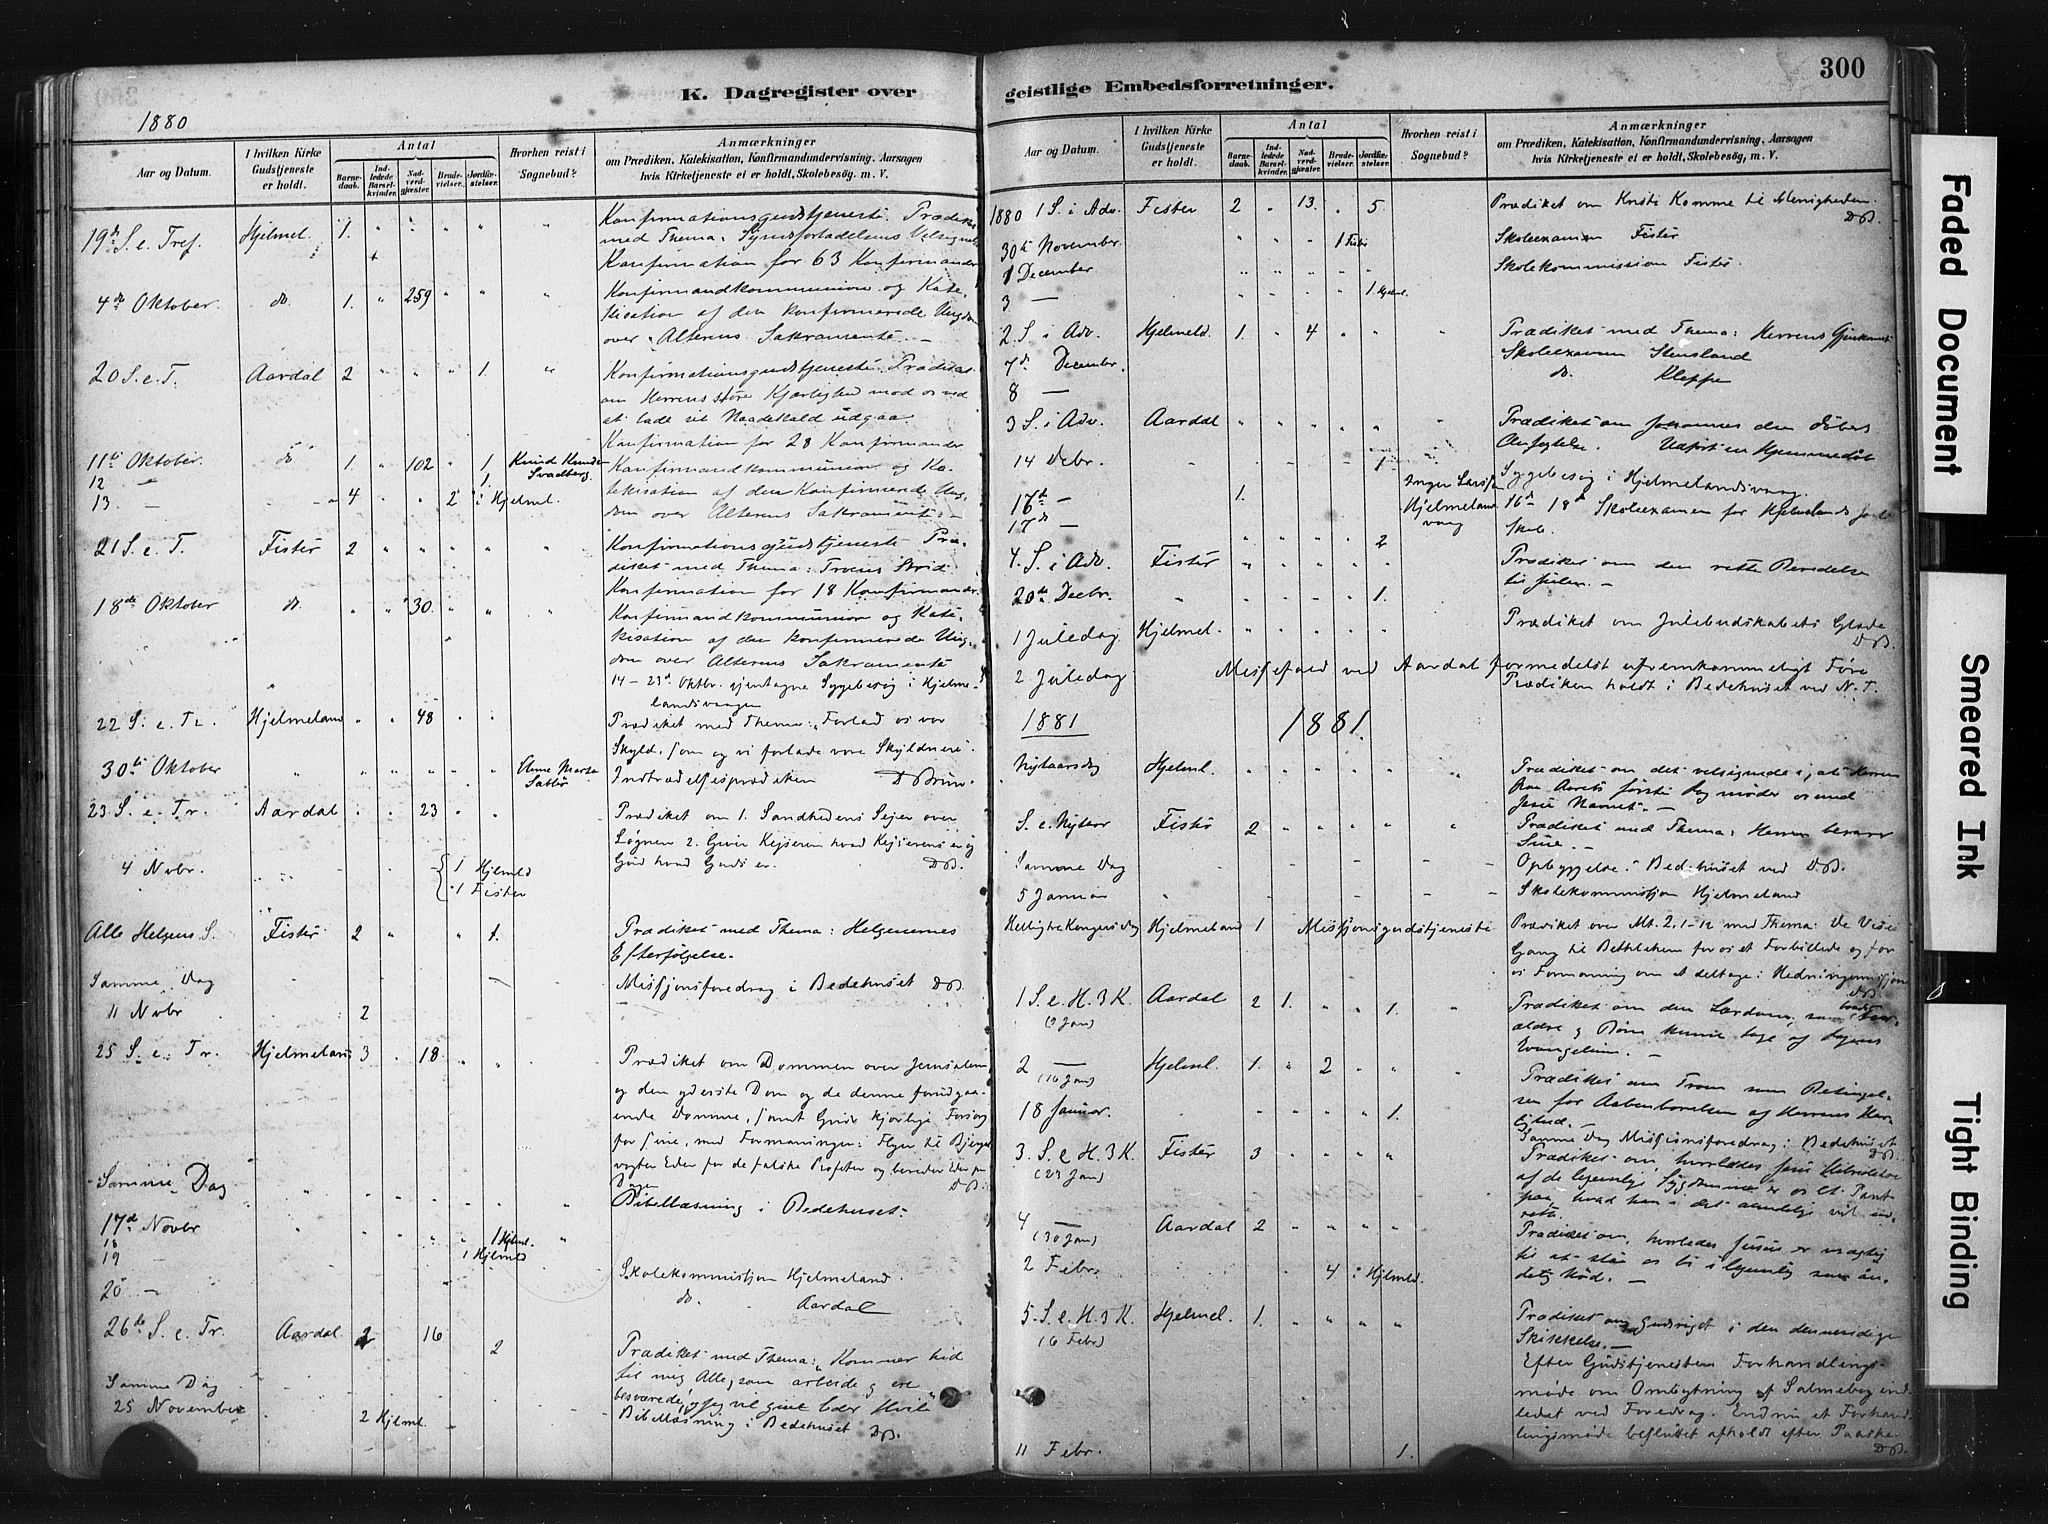 300
K. Dagregister over
geistlige Embedsforretninger.
1880
Aar og Datum.
I hvilken Kirke Gudstjeneste er holdt.
Antal
Barne-daab.
Ind-ledede Barsel-kvinder.
Nad-verd-gjæster.
Brude-vielser.
Jordfæ-stelser.
Hvorhen reist i Sognebud?
Anmærkninger
om Prædiken, Katekisation, Konfirmandundervisning, Aarsagen
hvis Kirketjeneste ei er holdt, Skolebesøg, m. V.
19de S. e. Tref. Hjelmel. 1. Konfirmationsgudstjeneste. Prædiket
med Thema: Syndsforladelsens
Konfirmation for 63 Konfirmander
4de Oktober. do. 1. " 259 " " " Konfirmandkommunion og Kate-
kisation af den konfirmerede Ungdom
over Alterens Sakramente. —
20 S. e. T. Aardal 2 " " " 1. " Konfirmationsgudstjeneste. Prædiket
om Herrens store Kjærlighed mod os ved
at lade sit Naadekald udgaa.
Konfirmation for 28 Konfirmander
11te Oktober. do. 1. " 102 " 1. Knud Knudsen Svadberg. Konfirmandkommunion og Ka-
12 " 1.
tekisation af den Konfirmerede Ung-
13. — 4 " " 2 i Hjelmel. dom over Alterens Sakramente. —
21 S. e. T. Fister 2 " " " " " Konfirmationsgudstjeneste Præ-
diket med Thema: Troens Strid
Konfirmation for 18 Konfirmander.
18de Oktober do. " " 30. " " " Konfirmandkommunion og Kate-
kisation af den konfirmerede Ung-
dom over Alterens Sakramente
14 – 23de Oktbr. Sygebesøg i Hjelme-
landsvaagen
22 S. e. Tr. Hjelmeland " " 48 " " Prædiket med Thema: "Forlad os vor
Skyld, som og vi forlade vore Skyldnere"
30te Oktober " " " " " " Anne Marta Indtrædelsesprædiken D Brun.
23 S. e. Tr. Aardal " " 23 " " Prædiket om 1. Sandhedens Sejer over
Løgnen 2. Giver Kejseren hvad Kejserens er og
Gud hvad Guds er. DB.
4 Nvbr. 1 Hjelmld
1 Fister
Alle Helgens S. Fister 2 " " 1. Prædiket med Thema: Helgenernes
Efterfølgelse.
Samme Dag Missjonsforedrag i Bedehuset DB.
11 Nvbr 2
25 S. e. Tr. Hjelmeland 3 " 18 " " Prædiket om Dommen over Jerusalem
og den yderste Dom og de denne forudgaa-
ende Domme, samt Guds kjærlige Forsorg
for sine, med Formaninger: Flyer til Bjerget
vogter Eder for de falske Profeter og bereder Eder paa
Dagen DB.
Samme Dag Bibellæsning i Bedehuset.
17de Novbr 1 Hjelml.
18 1 Hjelmld
19
Skolekommissjon Hjelmeland.
20 — do. Aardal
26de S. e. Tr. Aardal 2 16 2 Prædiket med Thema: "Kommer hid
til mig Alle, som arbeide og ere
besværede, og jeg vil give Eder Hvile"
Samme Dag Bibellæsning i Bedehuset DB.
25 November 2 Hjelml.
Aar og Datum.
I hvilken Kirke Gudstjeneste er holdt.
Antal
Barne-daab.
Ind-ledede Barsel-kvinder.
Nad-verd-gjæster.
Brude-vielser.
Jordfæ-stelser.
Hvorhen reist i Sognebud?
Anmærkninger
om Prædiken, Katekisation, Konfirmandundervisning, Aarsagen
hvis Kirketjeneste ei er holdt, Skolebesøg, m. V.
1880 1 S. i Adv. Fister 2 " 13. " 5. Prædiket om Kristi Komme til Menigheden.
DB.
30te November. 1 Fister Skoleexamen Fister
1 December Skolekommission Fister.
3 — 1 Hjelml.
2. S. i Adv. Hjelmeld. 1. " 4 " " " Prædiket med Thema: Herrens Gjenkomst
7de December. Skoleexamen Stensland
8 — do. Kleppe
3 S. i Adv. Aardal Prædiket om Johannes den Døbers
Anfegtelse. Udført en Hjemmedåb
14 Debr. 1 Sygebesøg i Hjelmelandsvaag.
16de — 1. Inger Larssen Hjelmelandsvaag 16de – 18de Skoleexamen for Hjelmelands
17de — Skole.
4. S. i Adv. Fister 2 Prædiket om den rette Beredelse
til Julen. —
20de Decbr. 1.
1 Juledag Hjelmel. Prædiket om Julebudskabets Glæde
DB.
2 Juledag Messefald ved Aardal formedelst ufremkommeligt Føre
Prædiken holdt i Bedehuset ved N. T.
1881 1881.
Nytaarsdag Hjelml. Prædiket om det velsignede i, at Herren
paa Aarets første Dag møder os med
Jesu Navnet. —
S. e. Nytaar Fister 2 " " " " " Prædiket med Thema: Herren bevarer
Sine. —
Samme Dag Opbyggelse i Bedehuset ved DB.
5 Januar Skolekommissjon Hjelmeland
Helligtre Kongers Dag Hjelmeland 1 Missjonsgudstjeneste Prædiket over Mt. 2, 1-12 med Thema: De Vises
Gang til Bethlehem for os et Forbillede og for
os Formaning om at deltage i Hedningemissjonen
DB.
1 S. e. H. 3 K. Aardal 2 1. " " 1. " Prædiket om den Lærdom, som
(9 Jan) ældre og Børn kunne tage af Dagens
Evangelium. —
2 — Hjelml. 1. " 2 " " " Prædiket om Troen som Betingel-
(16 Jan) sen for Aabenbarelsen af Herrens Her-
lighed. —
18 Januar. 1. Samme Dag Missjonsforedrag i Bedehuset
DB.
3. S. e H. 3 K. Fister 3 " " " " Prædiket om, hvorledes Jesu Helbredelse
(23 Jan) af de legemlige Sygdomme er os et Pant
paa, hvad han i det aandelige vil ud-
rette.
4 — Aardal 2 " " " " Prædiket om, hvorledes Jesus er mægtig
(30 Jan) til at stå os bi i legemlig som ån-
delig Nød. —
2 Febr. 4 i Hjelmld.
5. S. e H. 3 K Hjelmel. 1. " " " " Prædiket om Gudsriget i den dennesidige
(6 Febr) Skikkelse. —
Efter Gudstjenesten Forhandlings-
møde om Ombytning af Salmebog ind-
ledet ved Foredrag. Endnu et Forhand-
lingsmøde besluttet afholdt efter Paaske.
DB.
11 Febr. 1.
Faded Document
Smeared Ink
Tight Binding